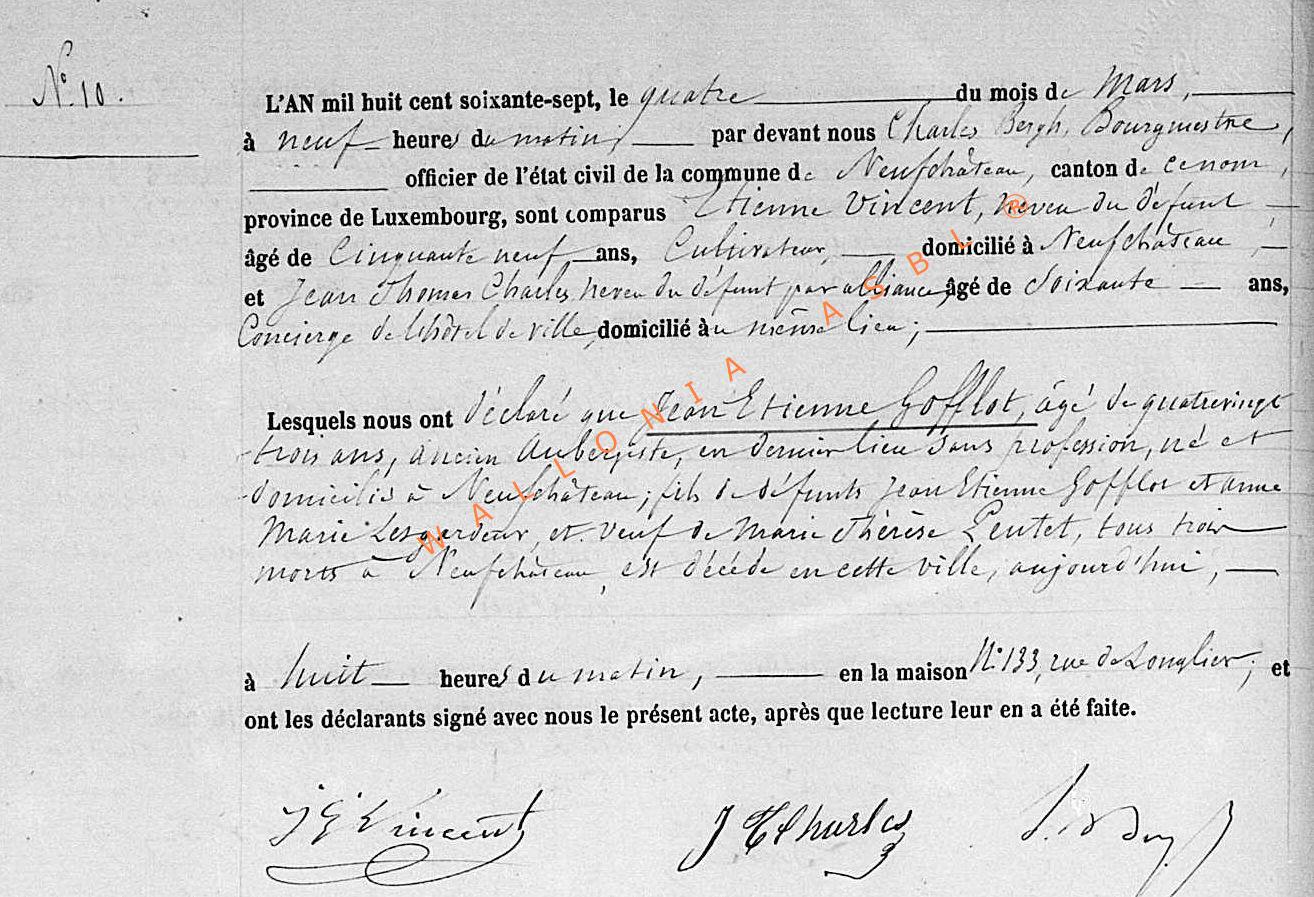 N° 10.
L'AN mil huit cent soixante-sept, le quatre du mois de Mars,
à neuf heures du matin, par devant nous Charles Bergh, Bourgmestre,
officier de l'état civil de la commune de Neufchâteau, canton de ce nom,
province de Luxembourg, sont comparus Etienne Vincent, neveu du défunt,
âgé de Cinquante neuf ans, Cultivateur, domicilié à Neufchâteau,
et Jean Thomas Charles, neveu du défunt par alliance, âgé de Soixante ans,
Concierge de l'hôtel de ville, domicilié au même lieu;
Lesquels nous ont déclaré que Jean Etienne Gofflot, âgé de quatrevingt
trois ans, ancien Aubergiste, en dernier lieu sans profession, né et
domicilié à Neufchâteau; fils de défunts Jean Etienne Gofflot et anne
Marie Lesgardeur, et veuf de Marie Thérèse Pentet, tous trois
morts à Neufchâteau, est décédé en cette ville, aujourd'hui,
à huit heures du matin, en la maison N° 133, rue de Longlier; et
ont les déclarants signé avec nous le présent acte, après que lecture leur en a été faite.
J E Vincent J T Charles
WALLONIA ASBL ®